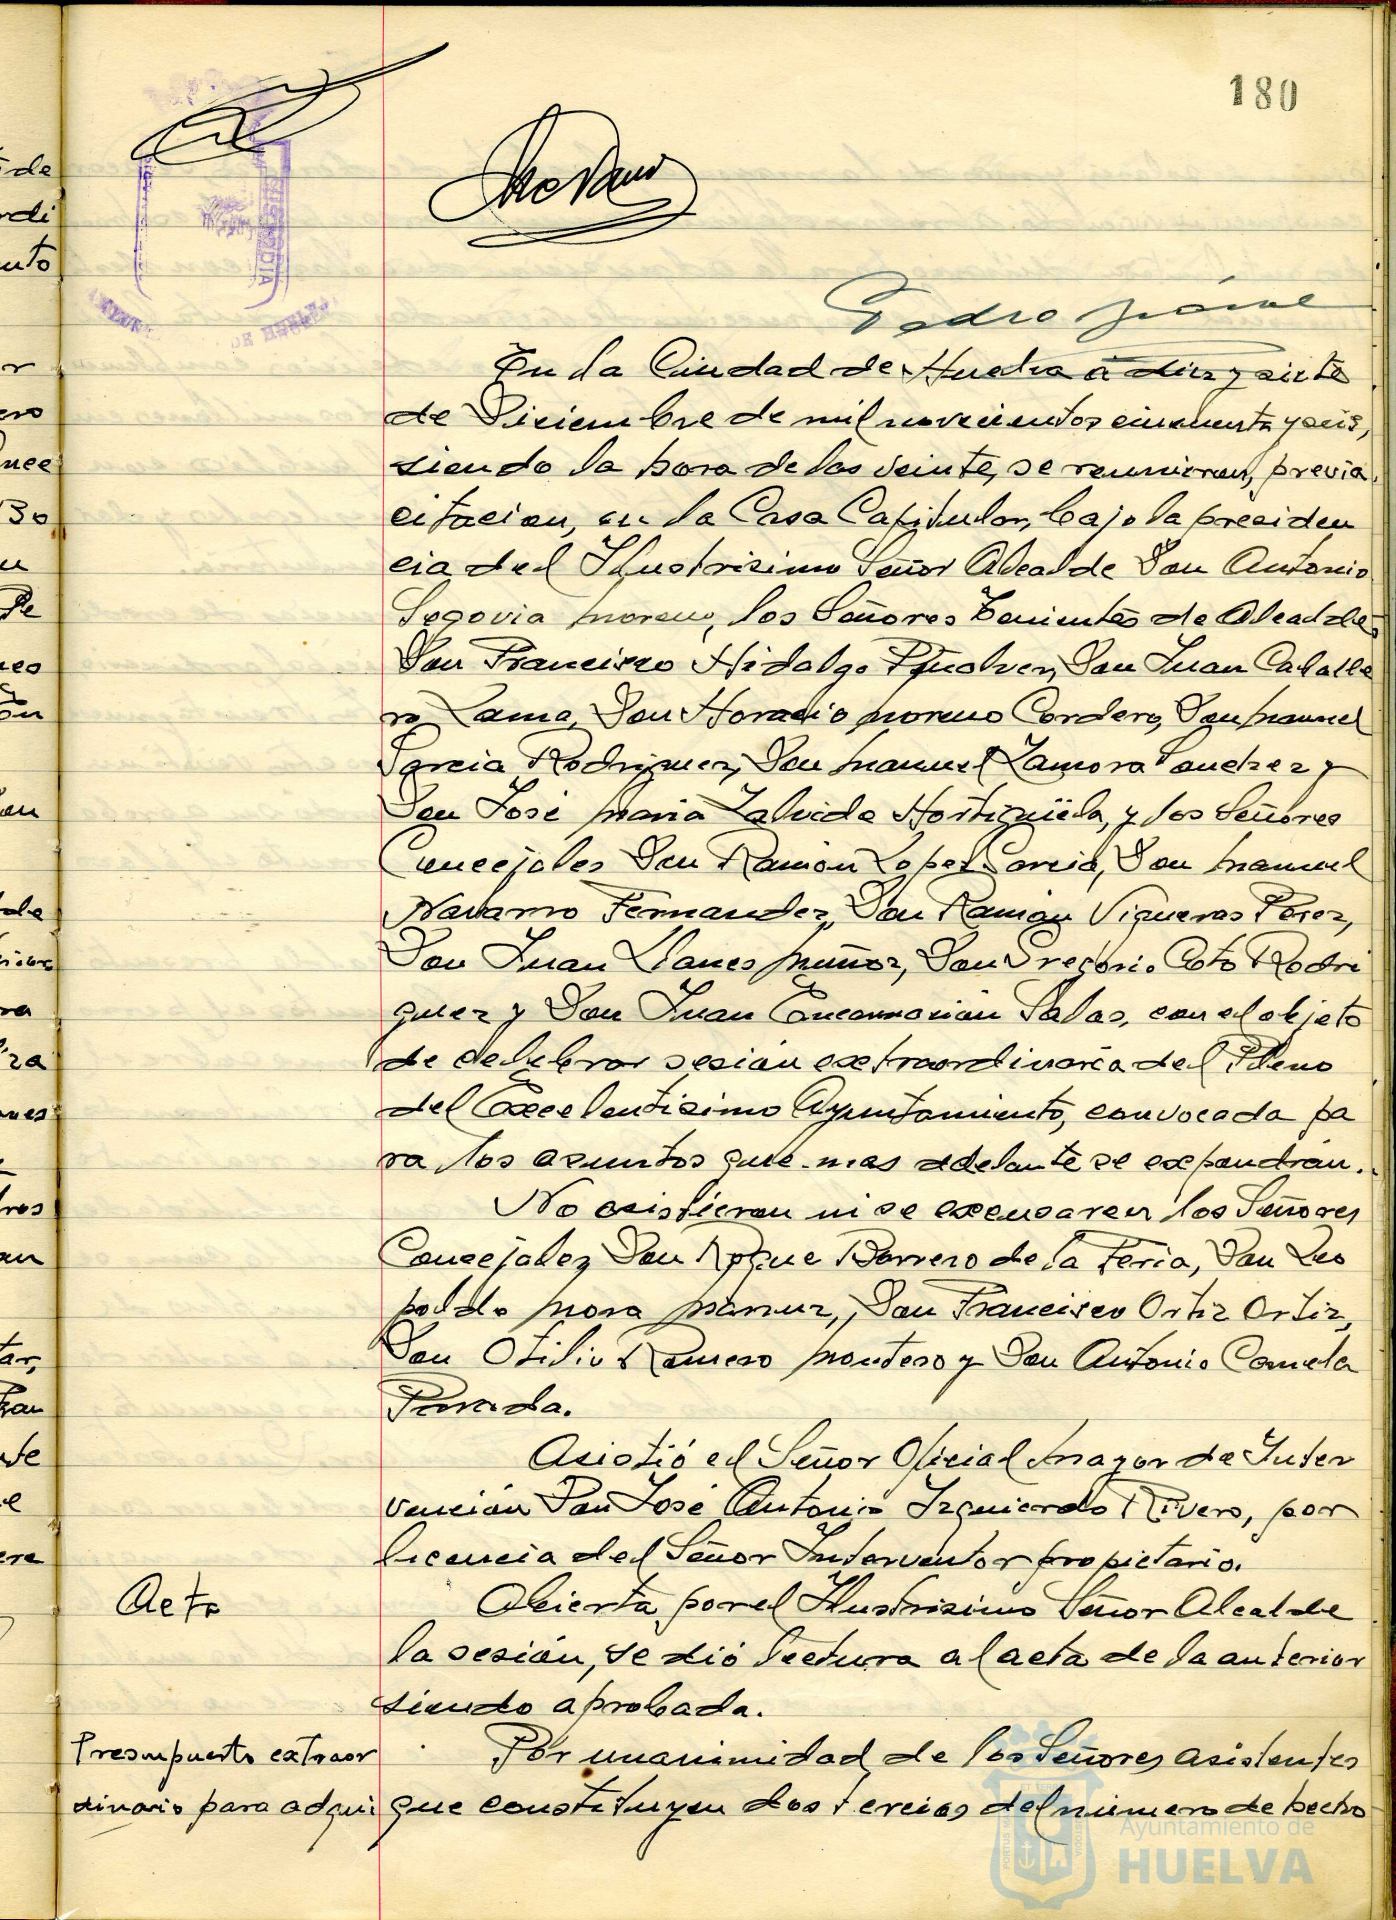 180
Pedro Jiménez
En la Ciudad de Huelva a diez y siete
de Diciembre de mil novecientos cincuenta y seis,
siendo la hora de las veinte, se reunieron, previa
citacion, en la Casa Capitular, bajo la presiden
cia del Ilustrisimo Señor Alcalde Don Antonio
Segovia Moreno, los Señores Tenientes de Alcalde,
Don Francisco Hidalgo Don Juan Caballe
ro Lama, Don Horacio Moreno Cordero, Don Manuel
Garcia Rodriguez, Don Manuel Zamora Sanchez y
Don José Maria Zalvide Hortigüela, y los Señores
Concejales Don Ramón Lopez Garcia, Don Manuel
Navarro Fernandez, Don Ramón Vigueras Perez,
Don Juan Llanes Muñoz, Don Gregorio Coto Rodri
guez y Don Juan Encarnación Salas, con el objeto
de celebrar sesión extraordinaria del Pleno
del Excelentisimo Ayuntamiento, convocada pa
ra los asuntos que mas adelante se expondrán.
No asistieron ni se excusaron los Señores
Concejales Don Roque Barrero de la Feria, Don Leo
poldo Mora Don Francisco Ortiz Ortiz,
Don Otilio Romero Montero y Don Antonio
Parada.
Asistió el Señor Oficial Mayor de Inter
vención Don José Antonio Izquierdo Rivero, por
licencia del Señor Interventor propietario.
Acta
Abierta por el Ilustrisimo Señor Alcalde
la sesión, se dió lectura al acta de la anterior
siendo aprobada.
Presupuesto extraor
dinario para adqui
Por unanimidad de los Señores asistentes
que constituyen dos tercios del número de hecho
Ayuntamiento de
HUELVA